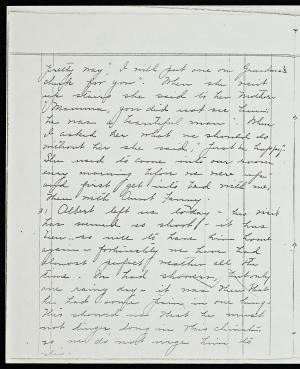 pretty way, "I will put one on Grandma's
chair for you". When she went
up stairs she said to her mother
"Mamma, you did not see him,
he was a beautiful man". When
I asked her what we should do
without her she said, "Just be happy".
She used to come into our room
every morning before we were up
and first get into bed with me,
then with Aunt Fanny.
31 Albert left us today - his visit
has seemed so short - it has
been so nice to have him home
again - fortunately we have had
almost perfect weather all the
time. We had showers, but only
one rainy day - it was then that
he had some pain in one lung -
This showed us that he must
not linger long in this climate
so we do not urge him to